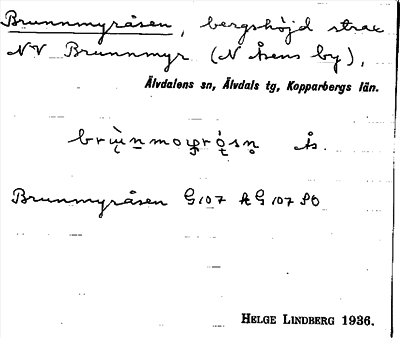 Brunnmyråsen, bergshöjd strax
NV Brunnmyr (N Åsens by),
Älvdalens sn, Älvdals tg, Kopparbergs län.
Ås.
Brunnmyråsen G 107 Æ G 107 SO
HELGE LINDBERG 1936.